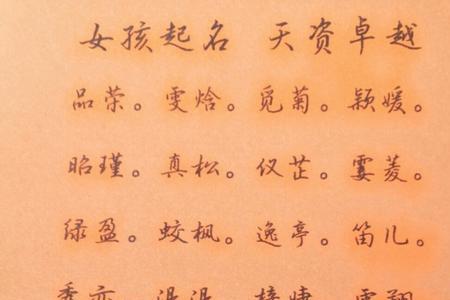 女孩起名 天资卓越
品荣。雯焓。觅菊。颖媛。
昭瑾。真松。仪芷。霎菱。
绿盈。蛟枫。逸亭。笛儿。